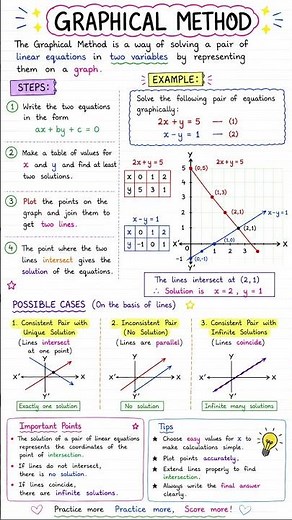 GRAPHICAL METHOD
The Graphical Method is a way of solving a pair of
linear equations in two variables by representing
them on a graph.
STEPS:
1 Write the two equations
in the form
ax + by + c = 0
2 Make a table of values for
x and y and find at least
two solutions.
3 Plot the points on
the graph and join them to
get two lines.
4 The point where the two
lines intersect gives the
solution of the equations.
EXAMPLE:
Solve the following pair of equations
graphically:
2x + y = 5 — (1)
x - y = 1 — (2)
2x + y = 5
x 0 1 2
y 5 3 1
x - y = 1
x 0 1 2
y -1 0 1
Y
2x + y = 5
(0,5)
(1,3)
(2,1)
x - y = 1
(1,0)
X
Y'
The lines intersect at (2, 1)
∴ Solution is x = 2, y = 1
POSSIBLE CASES (On the basis of lines)
1. Consistent Pair with
Unique Solution
(Lines intersect
at one point)
Y
X' X
Y'
Exactly one solution
2. Inconsistent Pair
(No Solution)
(Lines are parallel)
Y
X' X
Y'
No solution
3. Consistent Pair with
Infinite Solutions
(Lines coincide)
Y
X' X
Y'
Infinite many solutions
Important Points
The solution of a pair of linear equations
represents the coordinates of the
point of intersection.
If lines do not intersect,
there is no solution.
If lines coincide,
there are infinite solutions.
Tips
Choose easy values for x to
make calculations simple.
Plot points accurately.
Extend lines properly to find
intersection.
Always write the final answer
clearly.
Practice more Practice more, Score more!